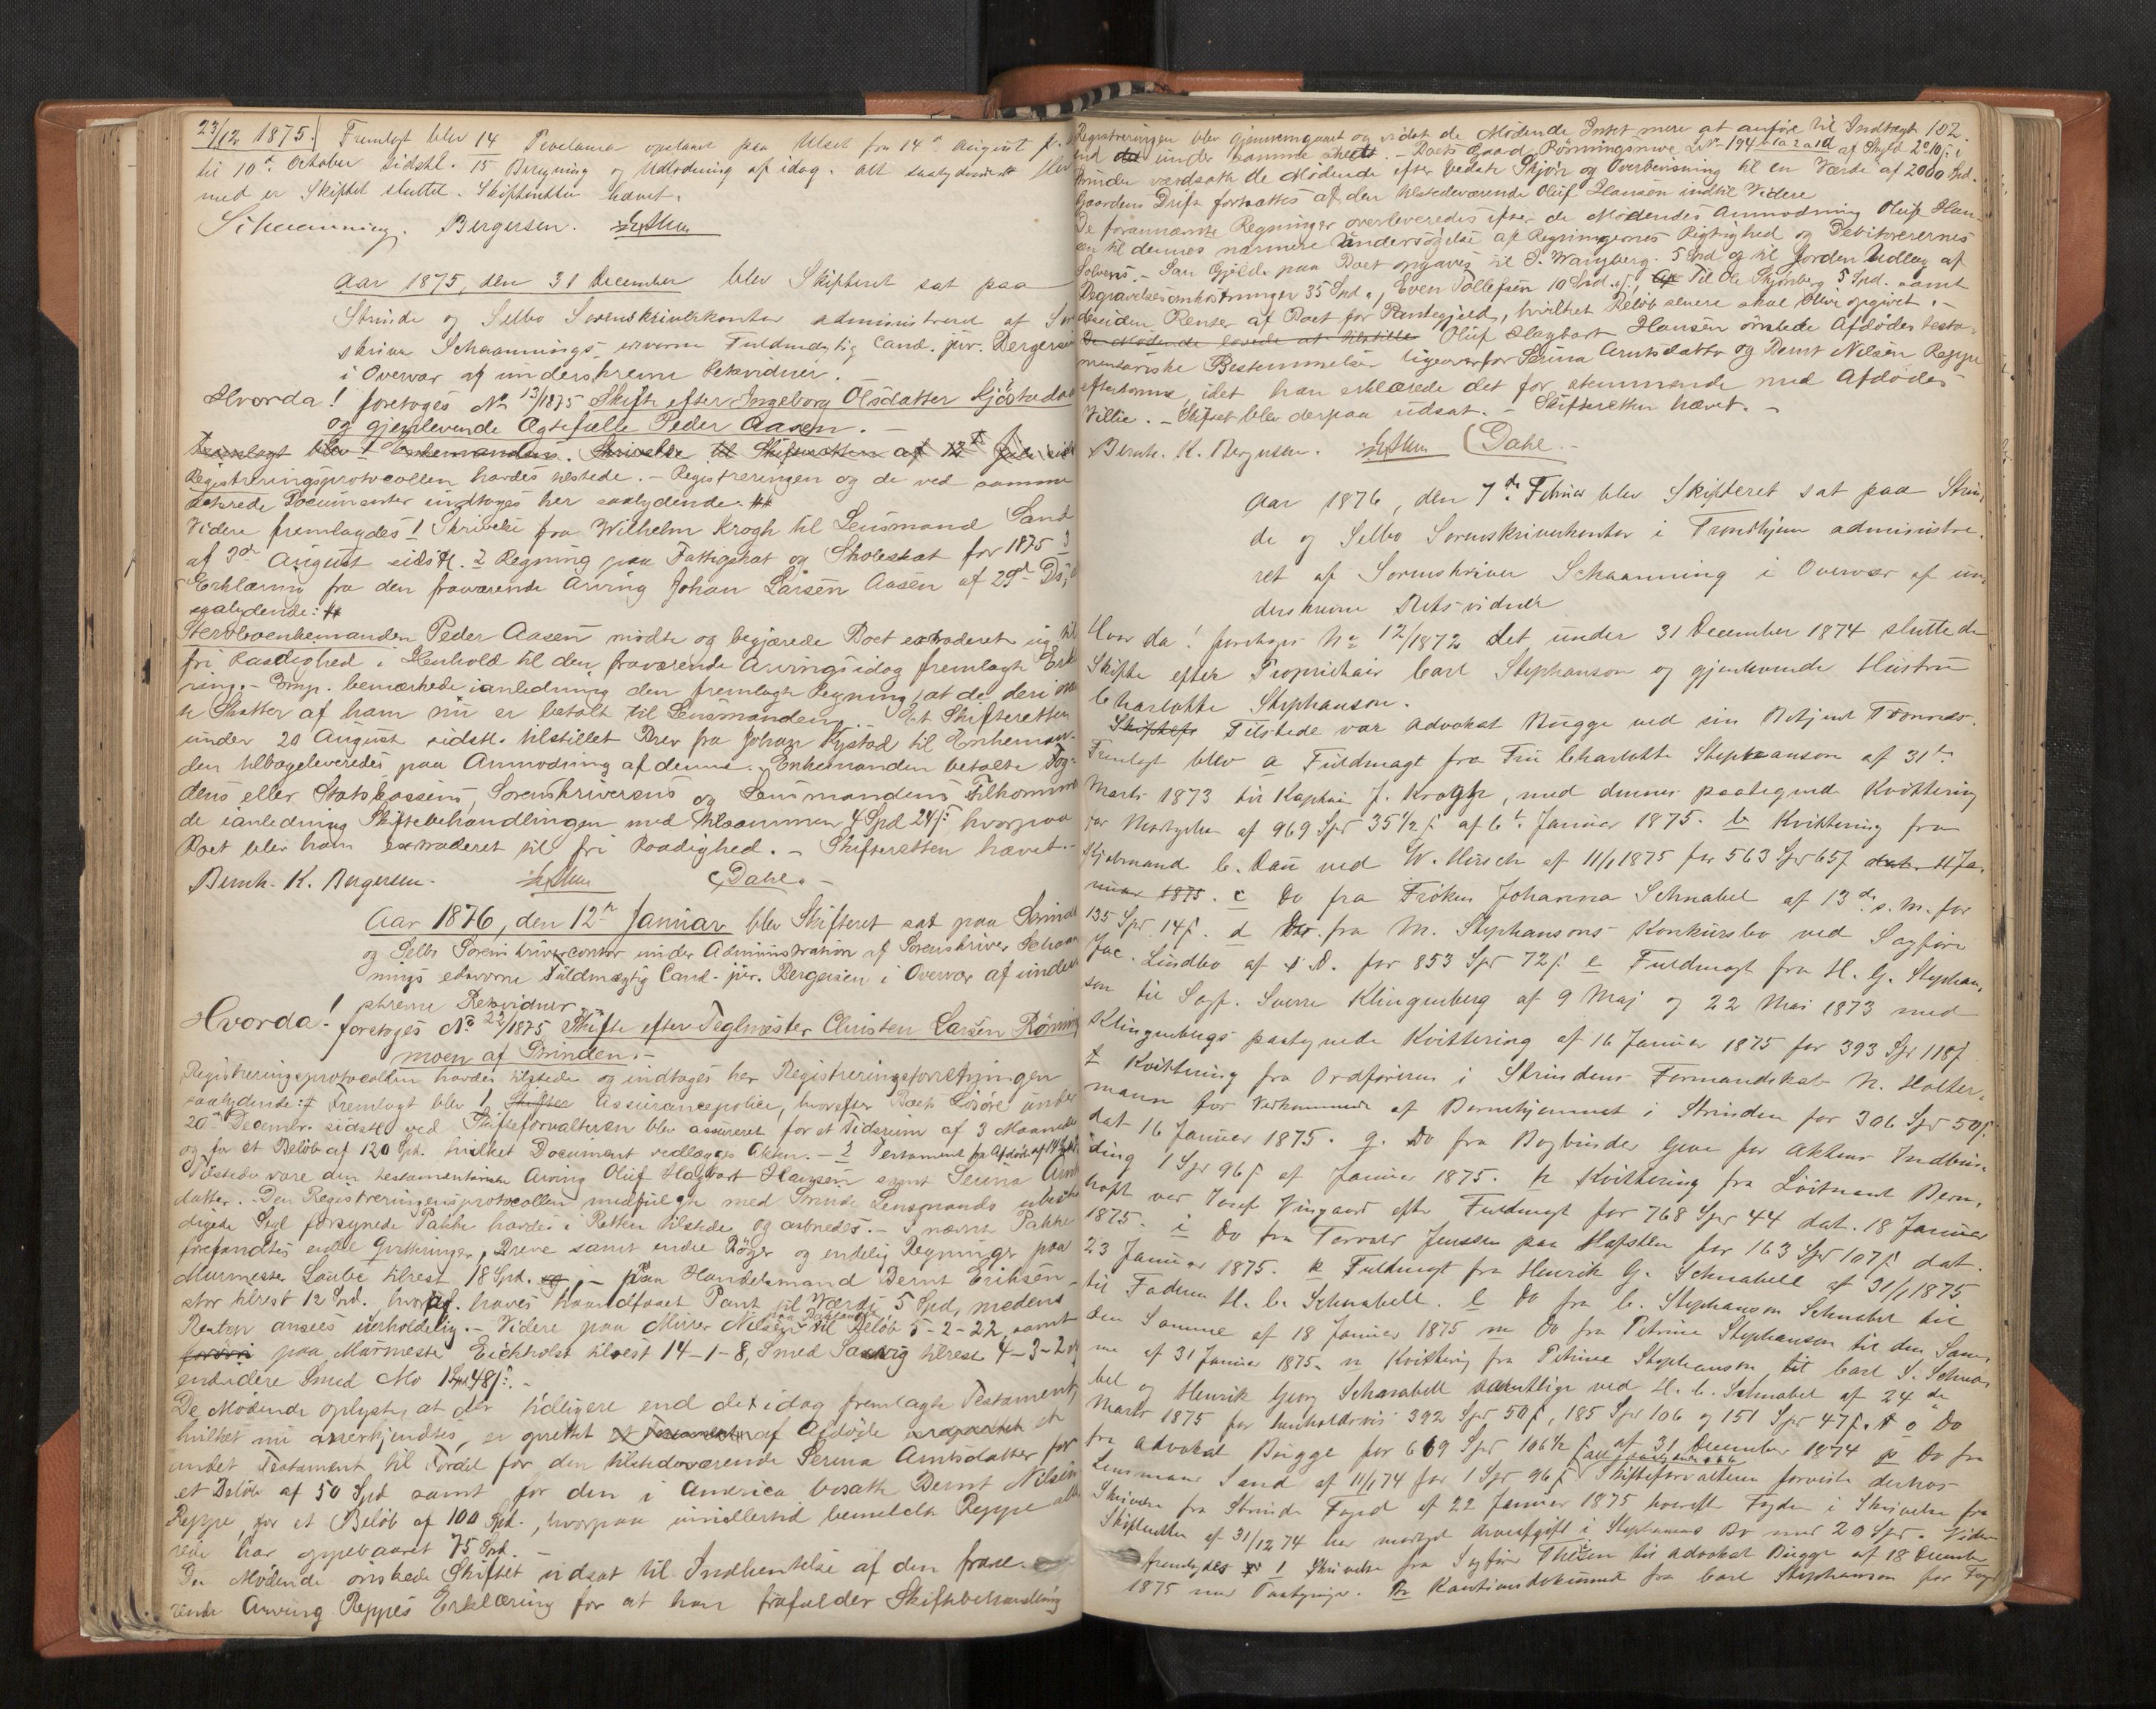 23/12 1875. Fremlagt blev 14 paa fra 14de August
til 10de October sidstl. 15 Beregning og Udlodning af idag. Alt saalydende
med er Skiftet sluttet. Skifteretten hævet.
Schaanning. Bergersen.
Aar 1875, den 31 December blev Skifteret sat paa
Strinde og Selbo Sorenskriverkontor administreret af Sor
skriver Schaannings edsvorne Fuldmægtig Cand. jur. Bergersen
i Overvær af underskrevne Retsvidner.
Hvorda! foretoges No 13/1875 Skifte efter Ingeborg Olsdatter
og gjenlevende Ægtefælle Peder Aasen. –
Fremlagt blev 1 Enkemandens Skrivelse til Skifteretten af 12te
Registreringsprotocollen havdes tilstede. – Registreringen og de ved samme
Documenter indtages her saalydende.
Videre fremlagdes 1 Skrivelse fra Wilhelm Krogh til Lensmand Sand
af 3de August sidstl. 2 Regning paa Fattigskat og Skoleskat for 1875 3
Erklæring fra den fraværende Arving Johan Larsen Aasen af 29de Ds,
saalydende:
Stervboenkemanden Peder Aasen mødte og begjærede Boet extraderet sig til
fri Raadighed i Henhold til den fraværende Arvings idag fremlagte Erk
ring. – Comp. bemærkede i anledning den fremlagte Regning, at de deri
te Skatter af ham nu er betalt til Lensmanden. – Det Skifteretten
under 20 August sidstl. tilstillet Brev fra Johan Kystad til Enkeman-
den tilbageleveredes paa Anmodning af denne. Enkemanden betalte Fog-
dens eller Statskassens, Sorenskriverens og Lensmandens Tilkommen
de i anledning Skiftebehandlingen med tilsammen 4 Spd 24 s hvorpaa
Boet blev ham extraderet til fri Raadighed. – Skifteretten hævet. –
Bernh. K. Bergersen. Dahl. –
Aar 1876, den 12te Januar blev Skifteret sat paa Strinde
og Selbo Sorenskrivercontor under Administration af Sorenskriver Schaan
nings edsvorne Fuldmægtig Cand. jur. Bergersen i Overvær af under
skrevne Retsvidner.
Hvorda! foretoges No 22/1875 Skifte efter Teglmester Christen Larsen Rønnings
moen af Strinden. –
Registreringsprotocollen havdes tilstede og indtages her Registreringsforretningen
saalydende: Fremlagt blev 1 Assurancepolice, hvorefter Boets Løsøre under
20de Decembr. sidstl. ved Skifteforvalteren blev assureret for et Tidsrum af 3 Maaneder
og for et Beløb af 120 Spd. hvilket Document vedlægges Akten. – 2 Testament fra Afdøde af
Tilstede vare den testamentariske Arving Oluf Hagbart Hansen samt Serina Arnts
datter. Den Registreringsprotocollen medfulgte med Strinde Lensmands ubeska
digede Segl forsynede Pakke havdes i Retten tilstede og aabnedes. – I nævnte Pakke
forefandtes endel Qvitteringer, Breve samt endel Bøger og endelig Regninger paa
Murmester Laube tilrest 18 Spd. – paa Handelsmand Bernt Eriksen
stor tilrest 12 Spd. hvoraf haves haandfaaet Pant til Værdi 5 Spd, medens
Resten ansees uerholdelig. – Videre paa Murer Nilsen til Beløb 5-2-22, samt
paa Murmester Eichholst tilrest 14-1-8, Smed tilrest 4-3-2 og
endvidere Smed Mo 1 Spd 48 s. –
De Mødende oplyste, at der tidligere end det idag fremlagte Testament,
hvilket nu anerkjendtes, er oprettet af Afdøde et
andet Testament til Fordel for den tilstedeværende Serina Arntsdatter for
et Beløb af 50 Spd samt for den i America bosatte Bernt Nilsen
Reppe, for et Beløb af 100 Spd., hvorpaa imidlertid bemeldte Reppe alle
rede har oppebaaret 75 Spd. –
De Mødende ønskede Skiftet udsat til Indhentelse af den fravæ-
rende Arving Reppes Erklæring for at han frafalder Skiftebehandling
Registreringen blev gjennemgaaet og vidste de Mødende Intet mere at anføre til Indtægt 102.
end det under samme skeet. – Boets Gaard Rønningsmoe L No 194 af Skyld
Strinde værdsatte de Mødende efter bedste Skjøn og Overbevisning til en Værdi af 2000 Spd.
Gaardens Drift fortsættes af den tilstedeværende Oluf Hansen indtil Videre
De forannævnte Regninger overleveredes efter de Mødendes Anmodning Oluf Han-
sen til dennes nærmere Undersøgelse af Regningernes Rigtighed og Debitorernes
Solvens. – Som Gjæld paa Boet opgaves til J. Wangberg. 5 Spd og til Jorden Udlæg af
Begravelsesomkostninger 35 Spd., Even Tollefsen 10 Spd, Til Ole Skjønberg 5 Spd. samt
desuden Renter af Boet for Pantegjeld, hvilket Beløb senere skal blive opgivet. –
De Mødende lovede at tilstille Oluf Hagbart Hansen ønskede Afdødes testa-
mentariske Bestemmelser ligeoverfor Serina Arntsdatter og Bernt Nilsen Reppe
efterkomne, idet han erklærede det for stemmende med Afdødes
Villie. – Skiftet blev derpaa udsat. – Skifteretten hævet. –
Bernh. K. Bergersen. Dahl. –
Aar 1876, den 7de Februar blev Skifteret sat paa Strin-
de og Selbo Sorenskriverkontor i Trondhjem administre-
ret af Sorenskriver Schaanning i Overvær af un-
derskrevne Retsvidner
Hvor da! foretoges No 12/1872 det under 31 December 1874 sluttede
Skifte efter Proprietair Carl Stephanson og gjenlevende Hustru
Charlotte Stephanson.
Tilstede var Advokat Bugge ved sin Betjent Trønnes.
Fremlagt blev a Fuldmagt fra Fru Charlotte Stephanson af 31te
Marts 1873 til Kaptain J. Krogh, med dennes paategnede Kvittering
for Modtagelse af 969 Spd 35½ s af 6te Januar 1875. b Kvittering fra
Kjøbmand C. Dau ved W. Hirsch af 11/1 1875 for 563 Spd 65 s dat. 11 Ja-
nuar 1875. c Do fra Frøken Johanna Schnabel af 13de s. M. for
135 Spd. 14 s. d Do fra M. Stephansons Konkursbo ved Sagfører
Jac. Lindbo af s. D. for 853 Spd 72 s e Fuldmagt fra H. G. Stephan-
son til Sagf. Sverre Klingenberg af 9 Maj og 22 Mai 1873 med
Klingenbergs paategnede Kvittering af 16 Januar 1875 for 393 Spd 118 s
f Kvittering fra Ordføreren i Strindens Formandskab N. Holter-
mann for Vedkommende af Børnehjemmet i Strinden for 306 Spd 50 s.
dat. 16 Januar 1875. g. Do fra Bogbinder Gone for Aktens Indbin-
ding 1 Spd 96 s af Januar 1875. h Kvittering fra Løitnant Bern-
hoft ved Josef Vingaard efter Fuldmagt for 768 Spd 44 dat. 18 Januar
1875. i Do fra Thorvald Jenssen paa Hafsten for 163 Spd 107 s dat.
23 Januar 1875. k Fuldmagt fra Henrik G. Schnabell af 31/1 1875
til Faderen H. C. Schnabell. l Do fra C. Stephanson Schnabel til
den Samme af 18 Januar 1875 m Do fra Petrine Stephanson til den Sam-
me af 31 Januar 1875. n Kvittering fra Petrine Stephanson, til Carl S. Schna-
bel og Henrik Georg Schnabell samtlige ved H. C. Schnabel af 24de
Marts 1875 for henholdsvis 392 Spd 50 s, 185 Spd 106 og 151 Spd 47 s. o Do
fra Advokat Bugge for 669 Spd 106½ s af 31 December 1874 p Do fra
Lensmand Sand af 11/1 74 for 1 Spd 96 s Skifteforvalteren foreviste derhos
Skrivelse fra Strinde Foged af 22 Januar 1875 hvorefter Fogden i Skrivelse fra
Skifteretten af 31/12 74 har modtget Arveafgift i Stephansons Bo med 20 Spd. Videre
fremlagdes 1 Skrivelse fra Sagfører Thesen til Advokat Bugge af 18 December
1875 med Paategning. 2 Kautionsdokument fra Carl Stephanson for